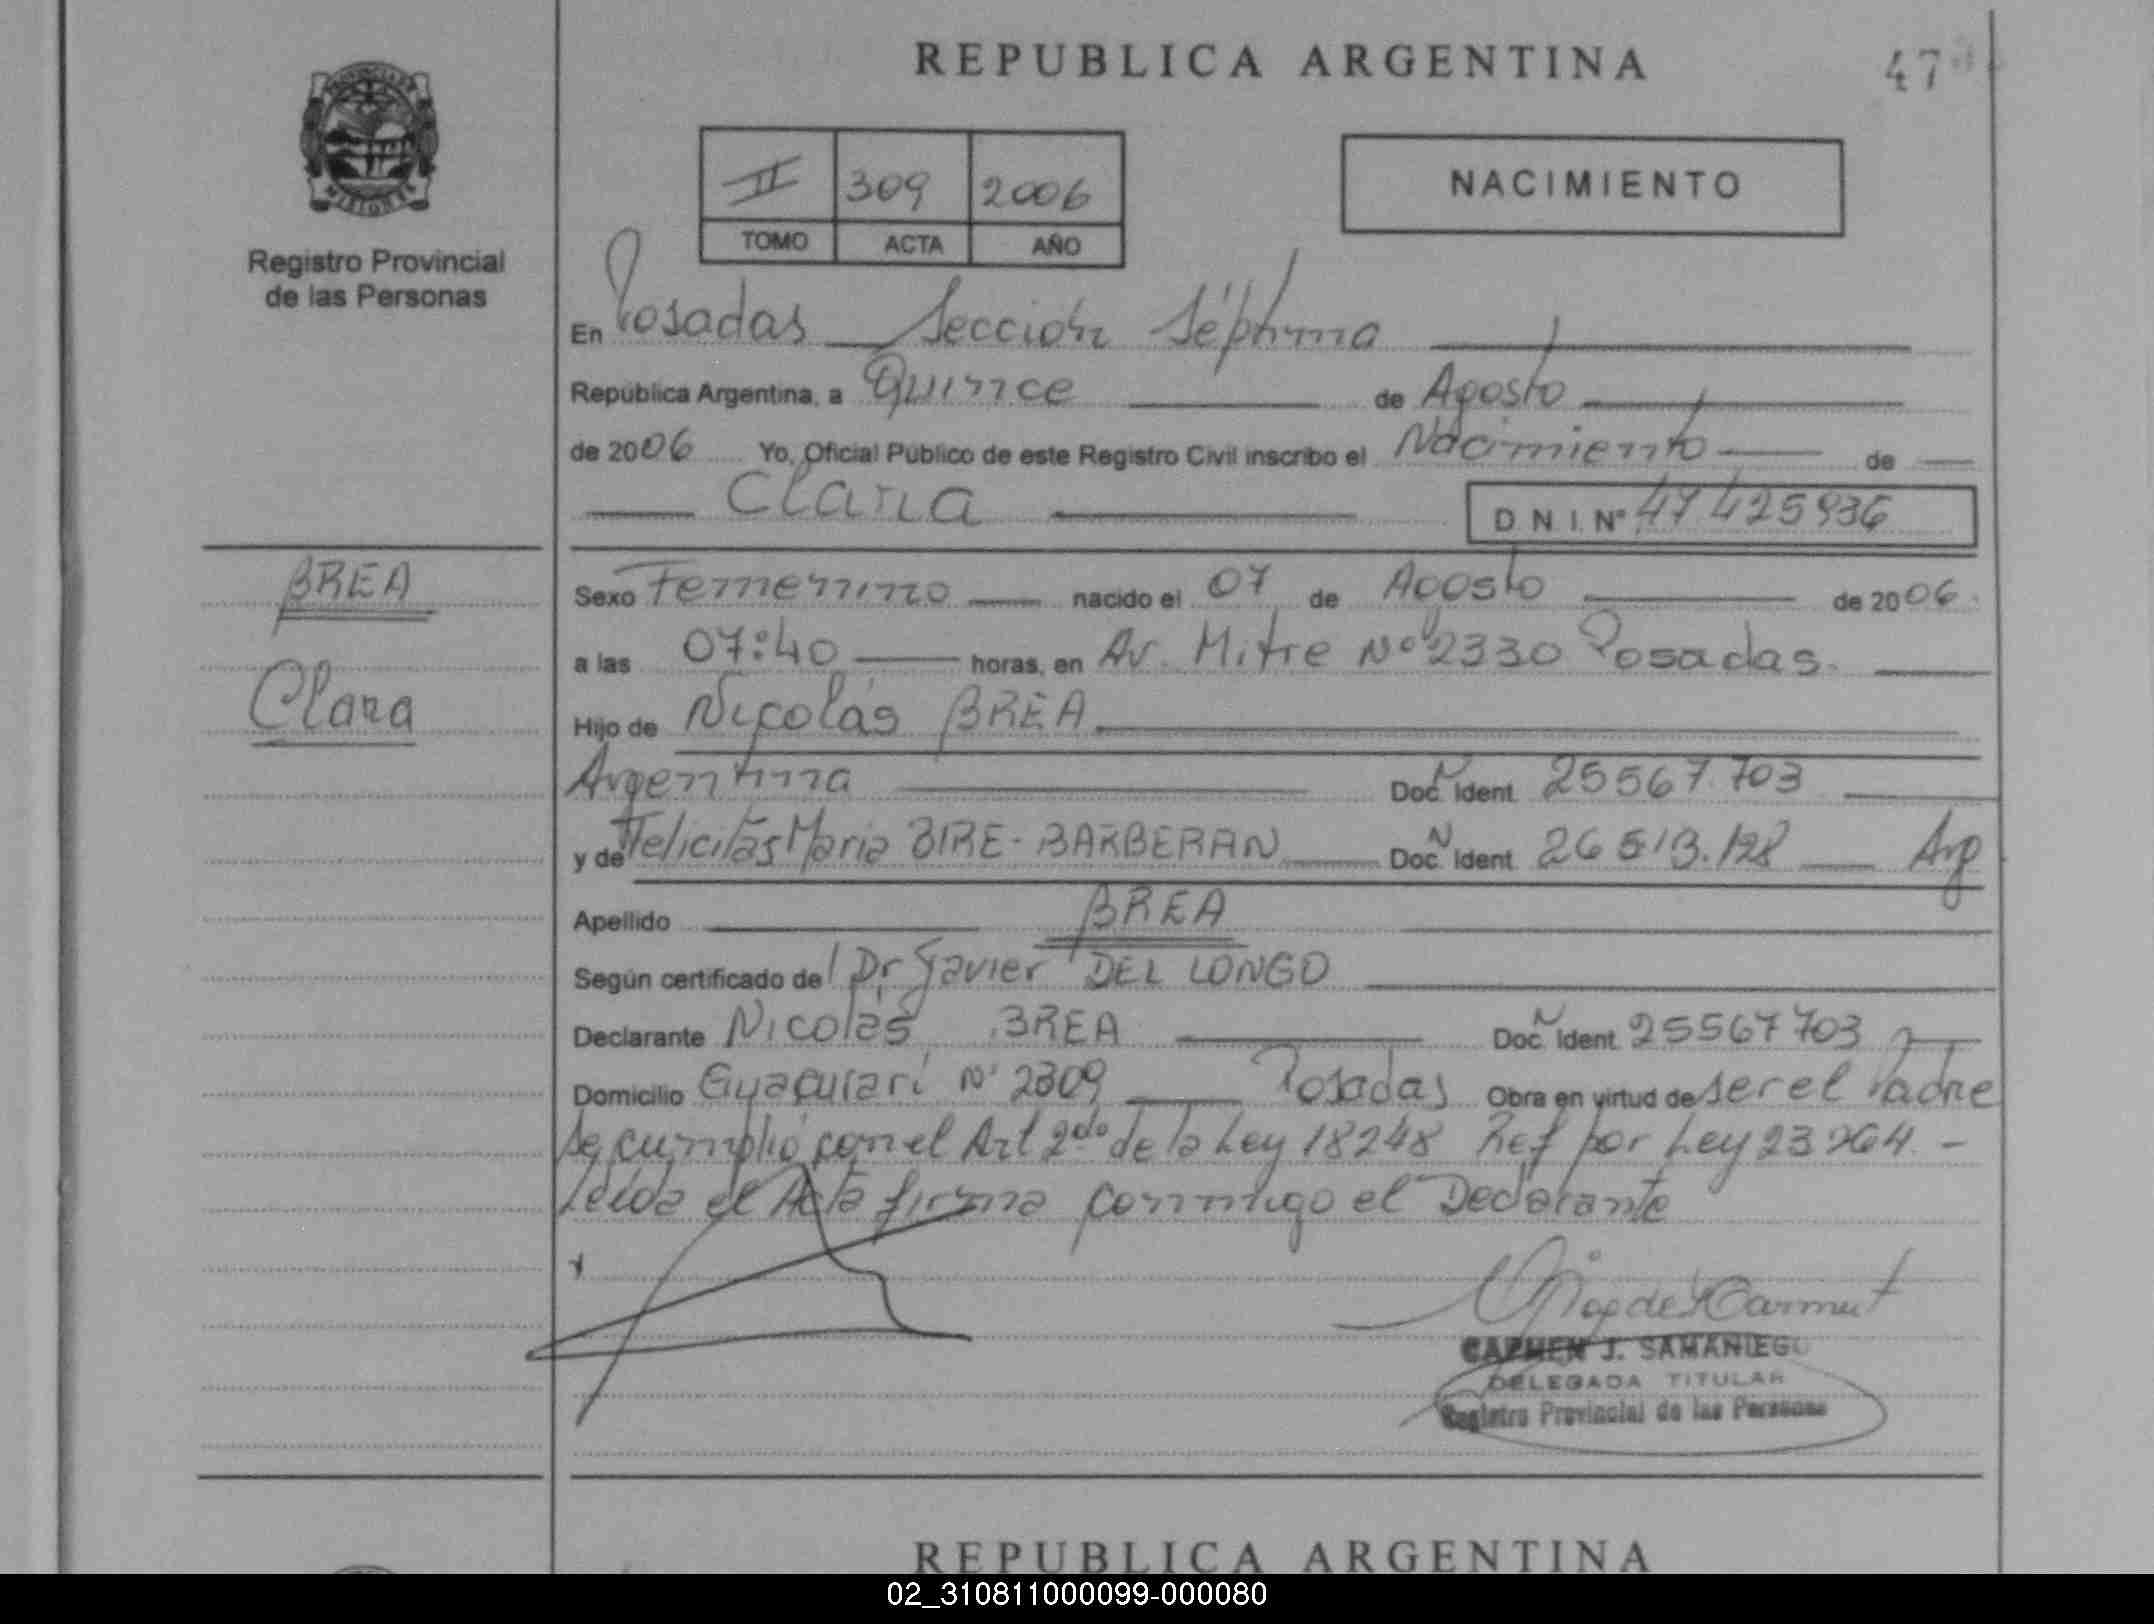 REPUBLICA ARGENTINA
47
PROVINCIA DE
MISIONES
Registro Provincial
de las Personas
II 309 2006
TOMO ACTA AÑO
NACIMIENTO
En Posadas Sección Séptima
República Argentina, a Quince de Agosto
de 2006 Yo, Oficial Público de este Registro Civil inscribo el Nacimiento de
Clara D N I. Nº 47 425936
BREA
Clara
Sexo Femenino nacido el 07 de Agosto de 2006
a las 07:40 horas, en Av. Mitre Nº 2330 Posadas.
Hijo de Nicolás BREA
Argentina Doc. N Ident 25567.703
y de Felicitas Maria BIRE-BARBERAN Doc. N Ident 26513.128 Arg
Apellido BREA
Según certificado de Dr Javier DEL LONGO
Declarante Nicolás BREA Doc. N Ident. 25567703
Domicilio Guacurarí Nº 2309 Posadas Obra en virtud de ser el Padre
Se cumplió con el Art 2do de la Ley 18248 Ref por Ley 23264.-
Leida el Acta firma conmigo el Declarante
CARMEN J. SAMANIEGO
DELEGADA TITULAR
Registro Provincial de las Personas
REPUBLICA ARGENTINA
02_310811000099-000080